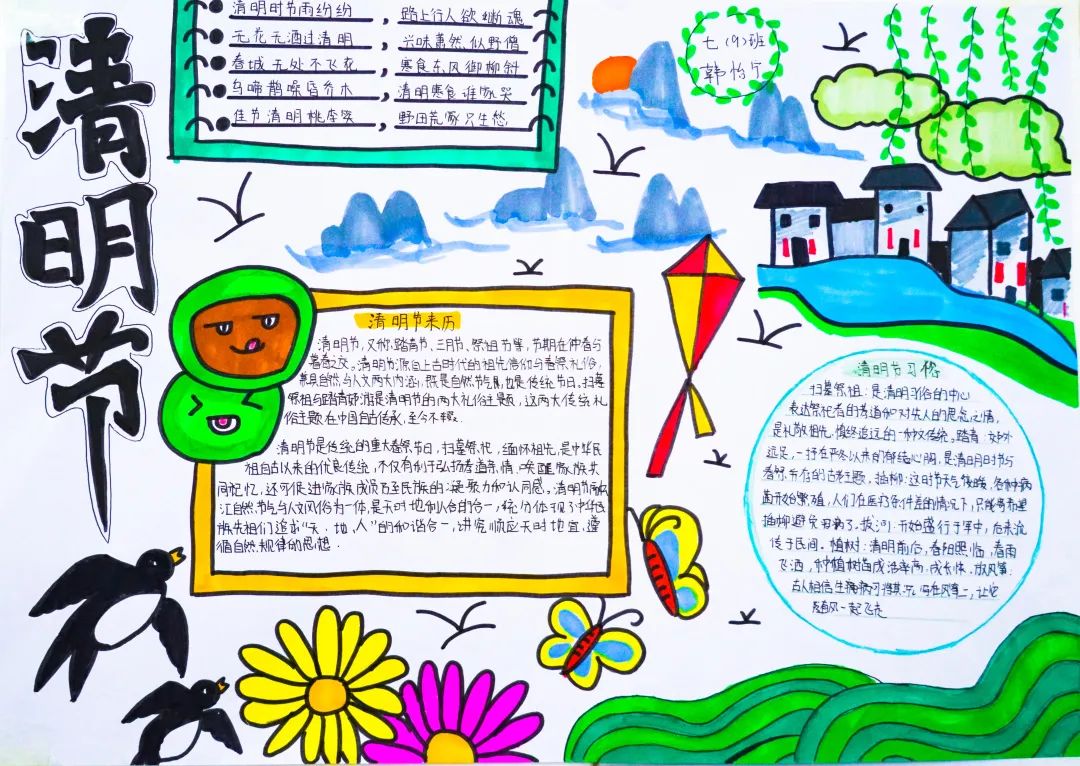 清明节
清明时节雨纷纷，路上行人欲断魂
无花无酒过清明，兴味萧然似野僧
春城无处不飞花，寒食东风御柳斜
乌啼鹊噪昏乔木，清明寒食谁家哭
佳节清明桃李笑，野田荒冢只生愁
七（9）班
韩怡
清明节来历
清明节，又称踏青节、三月节、祭祖节等，节期在仲春与
暮春之交。清明节源自上古时代的祖先信仰与春祭礼俗，
兼具自然与人文两大内涵，既是自然节气，也是传统节日，扫墓
祭祖与踏青郊游是清明节的两大礼俗主题，这两大传统礼
俗主题在中国自古传承，至今不辍。
清明节是传统的重大春祭节日，扫墓祭祀，缅怀祖先，是中华民
族自古以来的优良传统，不仅有利于弘扬孝道亲情、唤醒家族共
同记忆，还可促进家族成员乃至民族的凝聚力和认同感。清明节融
汇自然节气与人文风俗为一体，是天时地利人合的合一，充分体现了中华民
族先祖们追求“天、地、人”的和谐合一，讲究顺应天时地宜，遵
循自然规律的思想．
清明节习俗
扫墓祭祖：是清明习俗的中心
表达祭祀者的孝道和对先人的思念之情，
是礼敬祖先，慎终追远的一种文传统。踏青：
远足，一抒在严冬以来的郁结心胸，是清明时节与
春祭并存的古老主题，插柳：这时节天气很暖，各种病
菌开始繁殖，人们在医疗条件差的情况下，只能寄希望
插柳避免 拔河：开始盛行于军中，后来流
传于民间。植树：清明前后，春阳照临，春雨
飞洒，种植树苗成活率高，成长快，放风筝：
古人相信生病 写在风筝上，让它
随风一起飞走